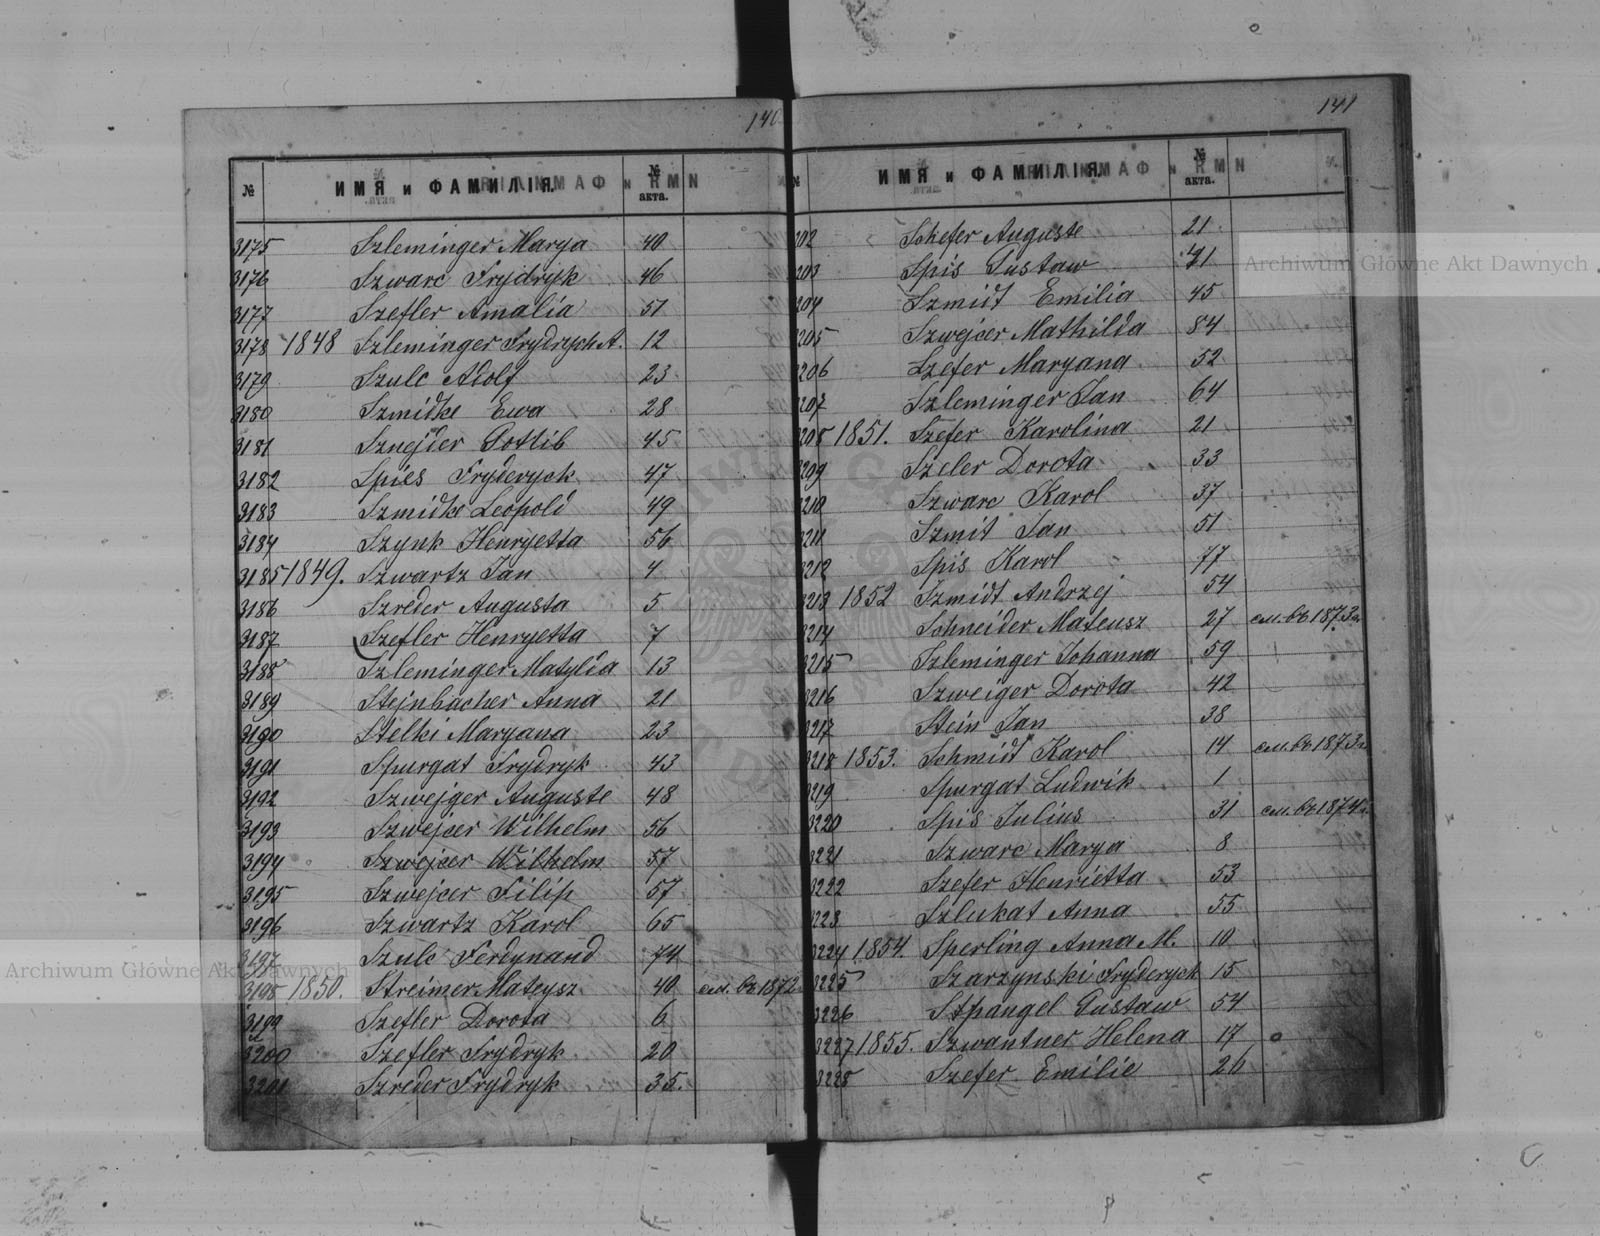 140
№ ИМЯ и ФАМИЛІЯ. № акта.
3175 Szleminger Marya 40
3176 Szwarc Frydryk 46
3177 Szefler Amalia 51
3178 1848 Szleminger Frydrych A. 12
3179 Szulc Adolf 23
3180 Szmidke Ewa 28
3181 Sznejder Gottlib 45
3182 Spies Fryderyck 47
3183 Szmidke Leopold 49
3184 Szynk Henryetta 56
3185 1849. Szwartz Jan 4
3186 Szreder Augusta 5
3187 Szefler Henryetta 7
3188 Szleminger Matylda 13
3189 Stejnbacher Anna 21
3190 Stelki Maryana 23
3191 Spurgat Frydryk 43
3192 Szwejger Auguste 48
3193 Szwejcer Wilhelm 56
3194 Szwejcer Wilhelm 57
3195 Szwejcer Filip 57
3196 Szwartz Karol 65
3197 Szulc Ferdynand 74
3198 1850. Streimer Mateysz 40 см. въ 1872
3199 Szefler Dorota 6
3200 Szefler Frydryk 20
3201 Szreder Frydryk 35.
141
№ ИМЯ и ФАМИЛІЯ. № акта.
202 Schefer Auguste 21
203 Spis Gustaw 41
204 Szmidt Emilia 45
205 Szwejcer Mathilda 84
206 Szefer Maryana 52
207 Szleminger Jan 64
208 1851. Szefer Karolina 21
209 Szeler Dorota 33
210 Szwarc Karol 37
211 Szmit Jan 51
3212 Spis Karol 77
3213 1852 Szmidt Andrzej 54
3214 Schneider Mateusz 27 см. въ 1873 г.
3215 Szleminger Johanna 59
3216 Szweiger Dorota 42
3217 Stein Jan 38
3218 1853. Schmidt Karol 14 см. въ 1873 г.
3219 Spurgat Ludwik 1
3220 Spis Julius 31 см. въ 1874 г.
3221 Szwarc Marya 8
3222 Szefer Henrietta 53
3223 Szlukat Anna 55
3224 1854. Sperling Anna M. 10
3225 Szarzynski Fryderyck 15
3226 Stpangel Gustaw 54
3227 1855. Szwantner Helena 17
3228 Szefer Emilie 26
Archiwum Główne Akt Dawnych
Archiwum Główne Akt Dawnych